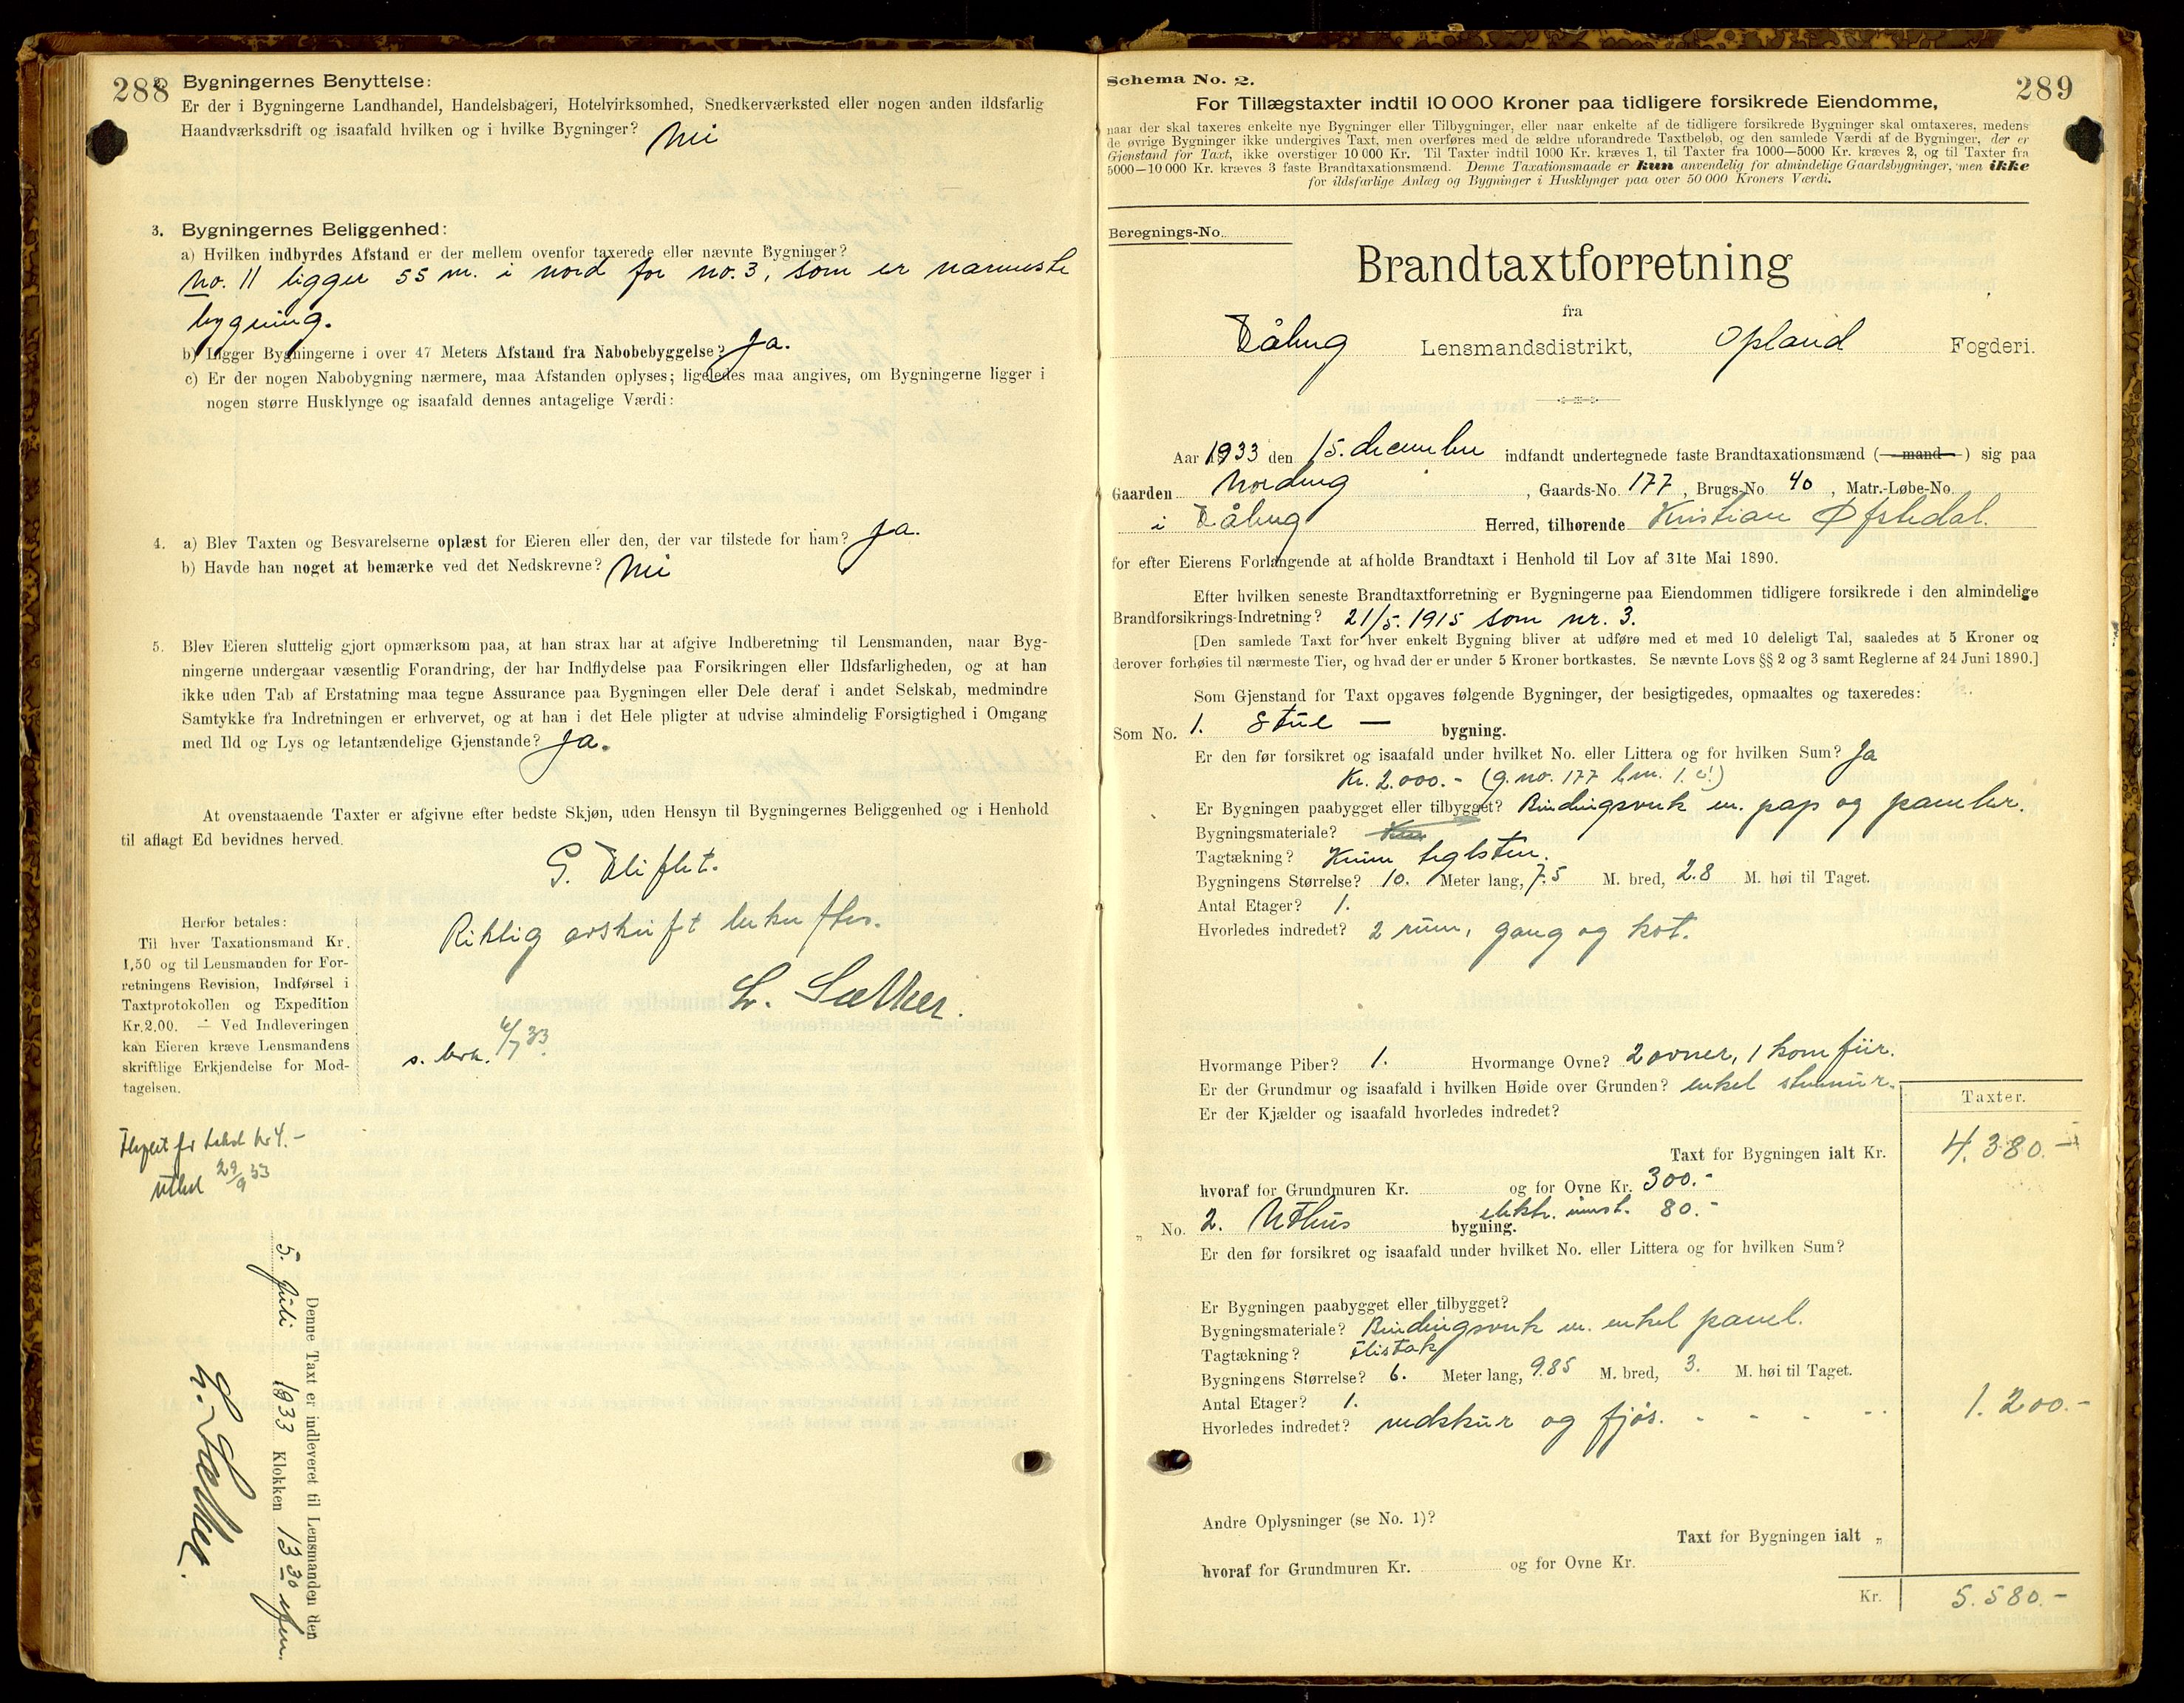 288
2. Bygningernes Benyttelse:
Er der i Bygningerne Landhandel, Handelsbageri, Hotelvirksomhed, Snedkerværksted eller nogen anden ildsfarlig
Haandværksdrift og isaafald hvilken og i hvilke Bygninger? Nei
3. Bygningernes Beliggenhed:
a) Hvilken indbyrdes Afstand er der mellem ovenfor taxerede eller nævnte Bygninger?
No. 11 ligger 55 m. i nord for no. 3, som er nærmeste
bygning.
b) Ligger Bygningerne i over 47 Meters Afstand fra Nabobebyggelse? Ja.
c) Er der nogen Nabobygning nærmere, maa Afstanden oplyses; ligeledes maa angives, om Bygningerne ligger i
nogen større Husklynge og isaafald dennes antagelige Værdi:
4. a) Blev Taxten og Besvarelserne oplæst for Eieren eller den, der var tilstede for ham? Ja.
b) Havde han noget at bemærke ved det Nedskrevne? Nei
5. Blev Eieren sluttelig gjort opmærksom paa, at han strax har at afgive Indberetning til Lensmanden, naar Byg-
ningerne undergaar væsentlig Forandring, der har Indflydelse paa Forsikringen eller Ildsfarligheden, og at han
ikke uden Tab af Erstatning maa tegne Assurance paa Bygningen eller Dele deraf i andet Selskab, medmindre
Samtykke fra Indretningen er erhvervet, og at han i det Hele pligter at udvise almindelig Forsigtighed i Omgang
med Ild og Lys og letantændelige Gjenstande? Ja.
At ovenstaaende Taxter er afgivne efter bedste Skjøn, uden Hensyn til Bygningernes Beliggenhed og i Henhold
til aflagt Ed bevidnes herved.
G. Fliflet.
Riktig avskrift bekreftes.
L. Sæther.
s. berk. 6/7 33.
Herfor betales:
Til hver Taxationsmand Kr.
1,50 og til Lensmanden for For-
retningens Revision, Indførsel i
Taxtprotokollen og Expedition
Kr. 2.00. — Ved Indleveringen
kan Eieren kræve Lensmandens
skriftlige Erkjendelse for Mod-
tagelsen.
kr 4.-
29/9 33
Denne Taxt er indleveret til Lensmanden den
5. juli 1933 Klokken 13 30 efm.
L. Sæther.
289
Schema No. 2.
For Tillægstaxter indtil 10 000 Kroner paa tidligere forsikrede Eiendomme,
naar der skal taxeres enkelte nye Bygninger eller Tilbygninger, eller naar enkelte af de tidligere forsikrede Bygninger skal omtaxeres, medens
de øvrige Bygninger ikke undergives Taxt, men overføres med de ældre uforandrede Taxtbeløb, og den samlede Værdi af de Bygninger, der er
Gjenstand for Taxt, ikke overstiger 10 000 Kr. Til Taxter indtil 1000 Kr. kræves 1, til Taxter fra 1000—5000 Kr. kræves 2, og til Taxter fra
5000—10 000 Kr. kræves 3 faste Brandtaxationsmænd. Denne Taxationsmaade er kun anvendelig for almindelige Gaardsbygninger, men ikke
for ildsfarlige Anlæg og Bygninger i Husklynger paa over 50 000 Kroners Værdi.
Beregnings-No.
Brandtaxtforretning
fra
Fåbrg Lensmandsdistrikt, Opland Fogderi.
Aar 1933 den 15. december indfandt undertegnede faste Brandtaxationsmænd (mand) sig paa
Gaarden Nordeng, Gaards-No. 177, Brugs-No. 40, Matr.-Løbe-No.
i Fåbrg Herred, tilhørende Kristian Øfstedal.
for efter Eierens Forlangende at afholde Brandtaxt i Henhold til Lov af 31te Mai 1890.
Efter hvilken seneste Brandtaxtforretning er Bygningerne paa Eiendommen tidligere forsikrede i den almindelige
Brandforsikrings-Indretning? 21/5. 1915 som nr. 3.
[Den samlede Taxt for hver enkelt Bygning bliver at udføre med et med 10 deleligt Tal, saaledes at 5 Kroner og
derover forhøies til nærmeste Tier, og hvad der er under 5 Kroner bortkastes. Se nævnte Lovs §§ 2 og 3 samt Reglerne af 24 Juni 1890.]
Som Gjenstand for Taxt opgaves følgende Bygninger, der besigtigedes, opmaaltes og taxeredes:
Som No. 1. Stue — bygning.
Er den før forsikret og isaafald under hvilket No. eller Littera og for hvilken Sum? Ja
Kr. 2.000.- (g. no. 177 1.)
Er Bygningen paabygget eller tilbygget? Bindingsverk m. pap og paneler.
Bygningsmateriale?
Tagtækning? Krum teglsten.
Bygningens Størrelse? 10. Meter lang, 7.5 M. bred, 2.8 M. høi til Taget.
Antal Etager? 1.
Hvorledes indredet? 2 rum, gang og kot.
Hvormange Piber? 1. Hvormange Ovne? 2 ovner, 1 komfür.
Er der Grundmur og isaafald i hvilken Høide over Grunden? enkel stenmur.
Er der Kjælder og isaafald hvorledes indredet?
Taxter.
Taxt for Bygningen ialt Kr. 4.380.-
hvoraf for Grundmuren Kr. og for Ovne Kr. 300.-
elektr. innst. 80.-
„ No. 2. Uthus bygning.
Er den før forsikret og isaafald under hvilket No. eller Littera og for hvilken Sum?
Er Bygningen paabygget eller tilbygget?
Bygningsmateriale? Bindingsverk m. enkel panel.
Tagtækning? Flistak
Bygningens Størrelse? 6. Meter lang, 9.85 M. bred, 3. M. høi til Taget.
Antal Etager? 1.
Hvorledes indredet? vedskur og fjøs. - - - - 1.200.-
Andre Oplysninger (se No. 1)?
Taxt for Bygningen ialt „
hvoraf for Grundmuren Kr. og for Ovne Kr.
Kr. 5.580.-